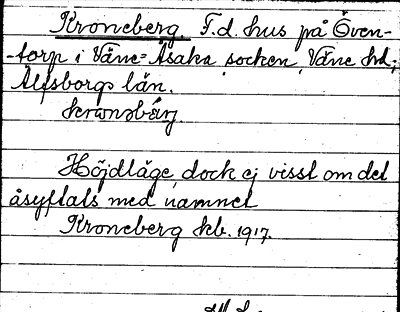 Kroneberg. F.d. hus på Öven-
-torp i Väne-Åsaka socken, Väne hd,
Älfsborgs län.
krωnəbärj.
Höjdläge, dock ej visst om det
åsyftats med namnet
Kroneberg kb. 1917.